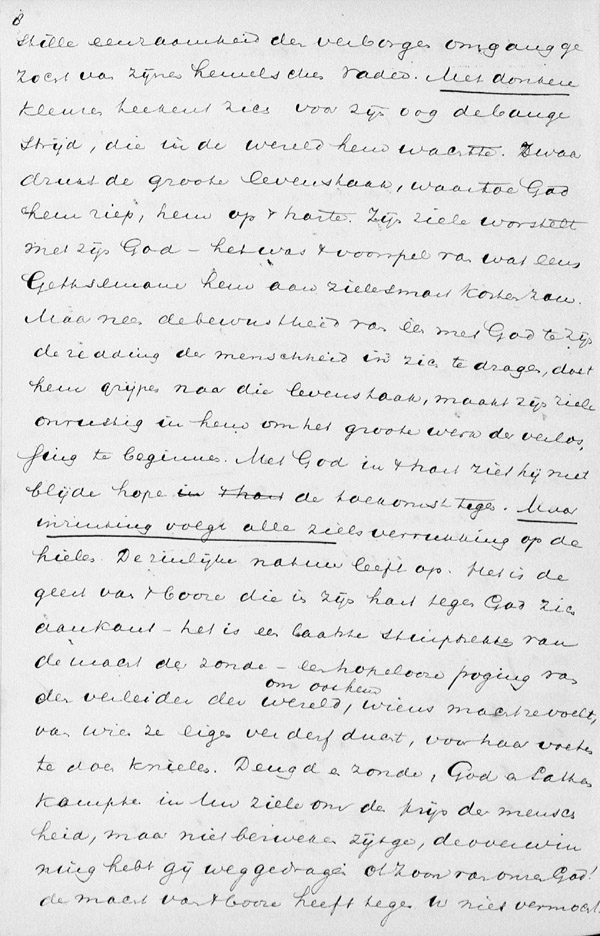 8
stille eenzaamheid den verborgen omgang ge
zocht van zijnen hemelschen Vader. Met donkere
kleuren teekent zich voor zijn oog de bange
strijd, die in de wereld hem wachtte. Zwaar
drukt de groote levenstaak, waartoe God
hem riep, hem op 't harte. Zijn ziele worstelt
met zijn God – het was 't voorspel van wat eens
Gethsemane hem aan zielesmart kosten zou.
Maar neen de bewustheid van één met God te zijn
de redding der menschheid in zich te dragen, doet
hem grijpen naar die levenstaak, maakt zijn ziele
onrustig in hem om het groote werk der verlos,
sing te beginnen. Met God in 't hart ziet hij met
blijde hope in 't hart de toekomst tegen. Maar
inzinking volgt alle zielsverrukking op de
hielen. De zinlijke natuur leeft op. Het is de
geest van 't booze die in zijn hart tegen God zich
aankant – het is een laatste stuiptrekken van
de macht der zonde – een hopelooze poging van
om ook hem
den verleider der wereld, wiens macht ze voelt,
van wien ze eigen verderf ducht, voor haar voeten
te doen knielen. Deugd en zonde, God en Satan
kampten in Uw ziele om de prijs der mensch
heid, maar niet bezweken zijt ge, de overwin
ning hebt gij weggedragen o! Zoon van onzen God!
de macht van 't booze heeft tegen U niets vermocht.